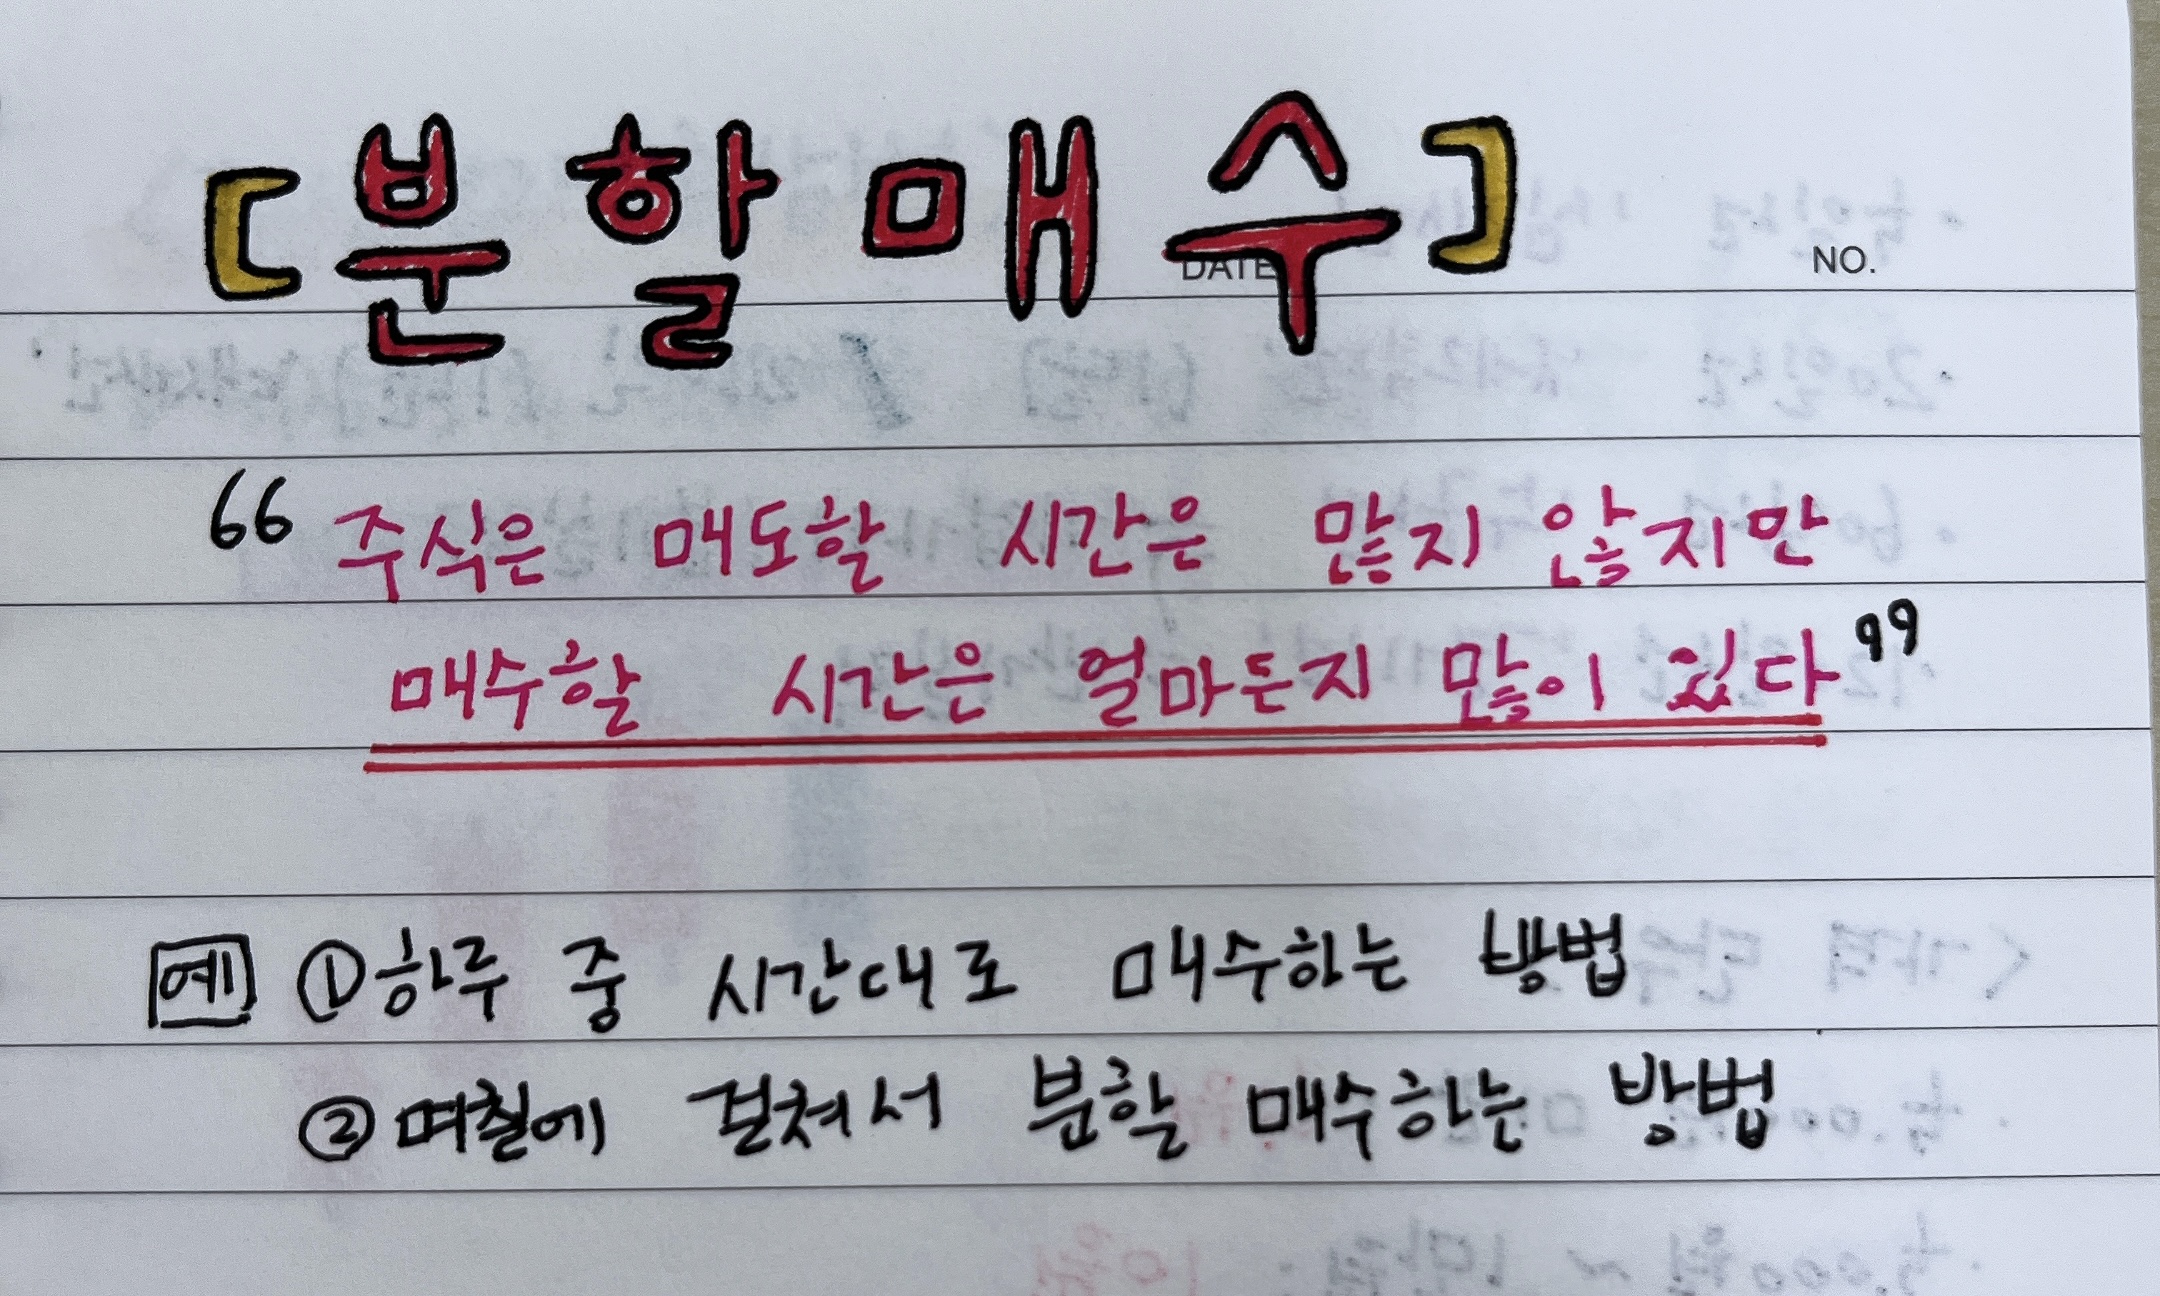 [분할매수]
DATE NO.
"주식은 매도할 시간은 많지 않지만
매수할 시간은 얼마든지 많이 있다"
예 ①하루 중 시간대로 매수하는 방법
②며칠에 걸쳐서 분할 매수하는 방법